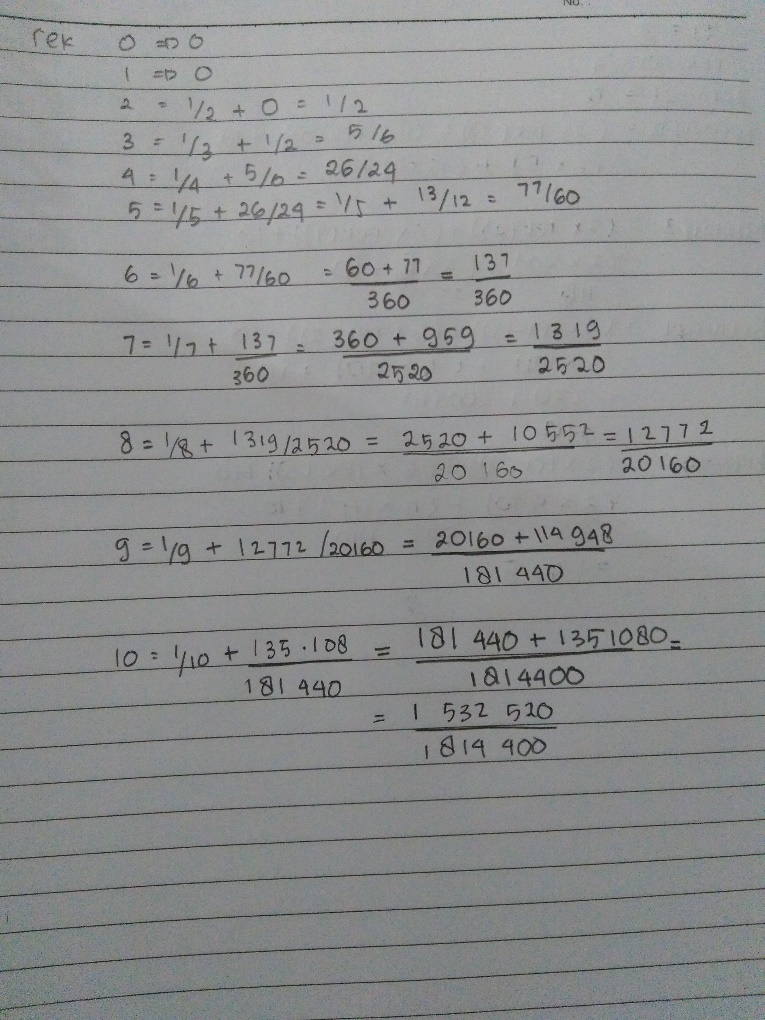 No.
rek 0 => 0
1 => 0
2 = 1/2 + 0 = 1/2
3 = 1/3 + 1/2 = 5/6
4 = 1/4 + 5/6 = 26/24
5 = 1/5 + 26/24 = 1/5 + 13/12 = 77/60
6 = 1/6 + 77/60 = 60 + 77 / 360 = 137 / 360
7 = 1/7 + 137 / 360 = 360 + 959 / 2520 = 1319 / 2520
8 = 1/8 + 1319/2520 = 2520 + 10552 / 20160 = 12772 / 20160
9 = 1/9 + 12772/20160 = 20160 + 114 948 / 181 440
10 = 1/10 + 135.108 / 181 440 = 181 440 + 1351080 / 1814400 =
= 1 532 520 / 1814 400